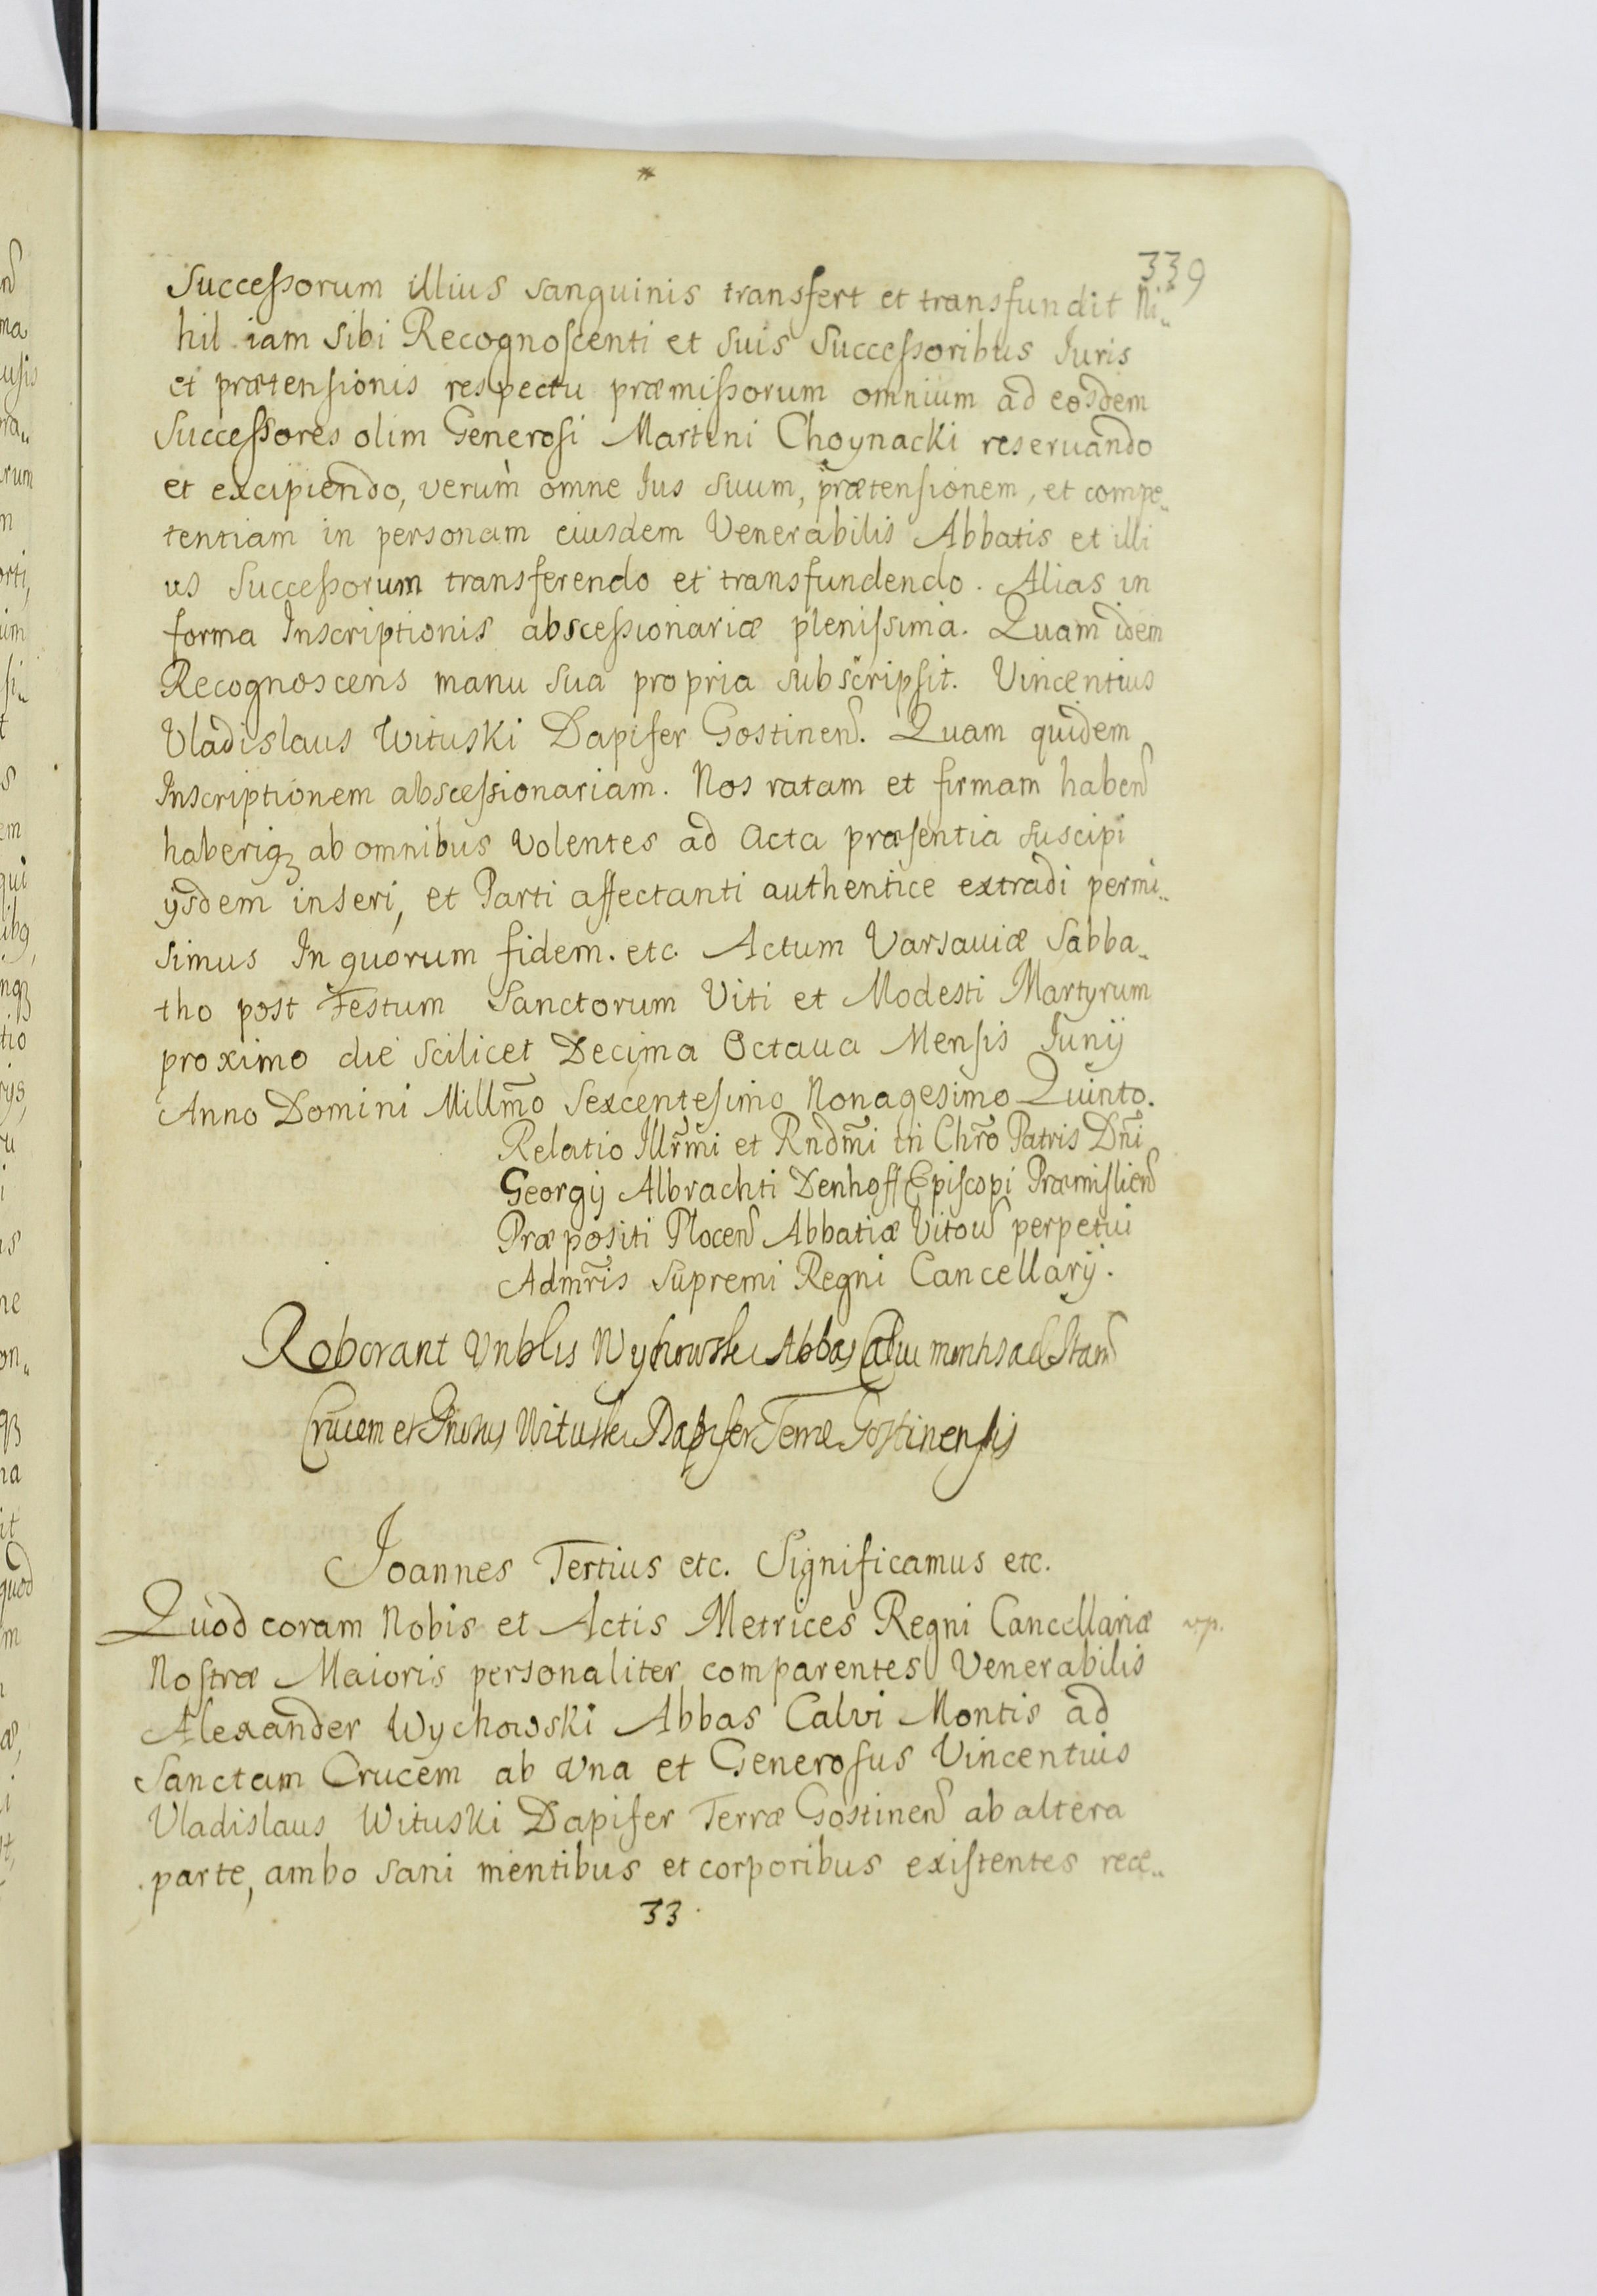 339
Successorum illius sanguinis transfert et transfundit Ni„
hil iam sibi Recognoscenti et suis Successoribus Iuris
et prætensionis respectu præmissorum omnium ad eosdem
Successores olim Generosi Martini Choynacki reseruando
et excipiendo, verùm omne Ius suum, prætensionem, et compe„
tentiam in personam eiusdem Venerabilis Abbatis et illi
us Successorum transferendo et transfundendo. Alias in
forma Inscriptionis abscessionariæ plenissima. Quam idem
Recognoscens manu sua propria subscripsit. Vincentius
Vladislaus Wituski Dapifer Gostinen. Quam quidem
Inscriptionem abscessionariam. Nos ratam et firmam haben
haberiq₃ ab omnibus volentes ad Acta præsentia suscipi
ijsdem inseri, et Parti affectanti authentice extradi permi„
simus In quorum fidem. etc. Actum Varsauiæ Sabba„
tho post Festum Sanctorum Viti et Modesti Martyrum
proximo die scilicet Decima Octaua Mensis Iunij
Anno Domini Millmo Sexcentesimo Nonagesimo Quinto.
Relatio Illrmi et Rndmi in Chro Patris Dni
Georgij Albrachti Denhoff Episcopi Præmislien
Præpositi Plocen Abbatiæ Vitow perpetui
Admris Supremi Regni Cancellarij.
Roborant Vnblis Wychowski Abbas Calui montis ad Stam
Crucem et Gnosus Wituski Dapifer Terræ Gostinensis
Joannes Tertius etc. Significamus etc.
Quod coram Nobis et Actis Metrices Regni Cancellariæ
Nostræ Maioris personaliter comparentes Venerabilis
Alexander Wychowski Abbas Calvi Montis ad
Sanctam Crucem ab vna et Generosus Vincentius
Vladislaus Wituski Dapifer Terræ Gostinen ab altera
parte, ambo sani mentibus et corporibus existentes rece„
33